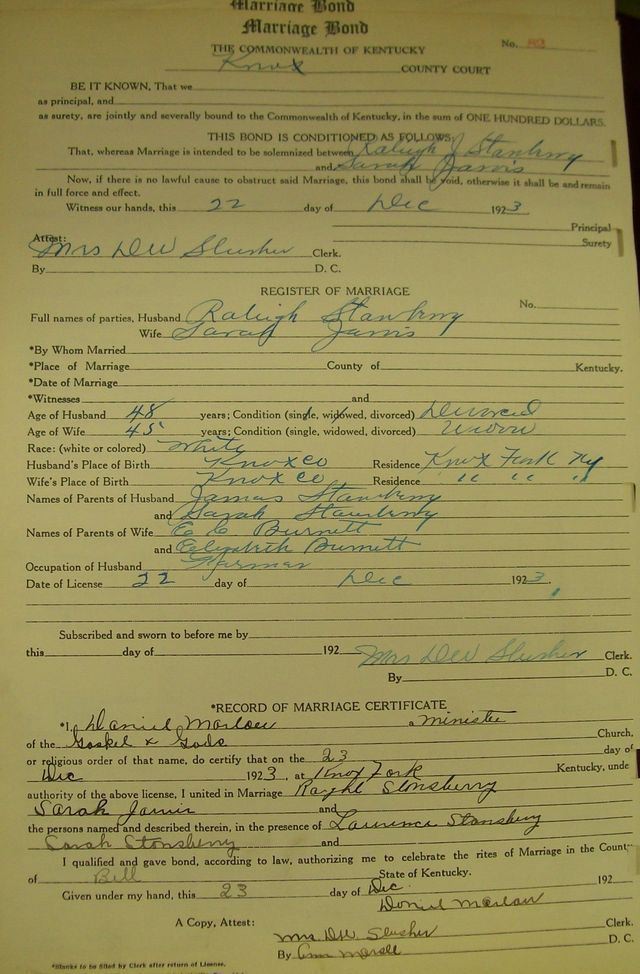 Marriage Bond
Marriage Bond
THE COMMONWEALTH OF KENTUCKY
No.
Knox COUNTY COURT
BE IT KNOWN, That we
as principal, and
as surety, are jointly and severally bound to the Commonwealth of Kentucky, in the sum of ONE HUNDRED DOLLARS.
THIS BOND IS CONDITIONED AS FOLLOWS:
That, whereas Marriage is intended to be solemnized between Raleigh J Stanberry
and Sarah Jarvis
Now, if there is no lawful cause to obstruct said Marriage, this bond shall be void, otherwise it shall be and remain
in full force and effect.
Witness our hands, this 22 day of Dec 1923
Principal
Surety
Attest:
Mrs DW Slusher Clerk.
By D. C.
REGISTER OF MARRIAGE
No.
Full names of parties, Husband Raleigh Stanberry
Wife Sarah Jarvis
*By Whom Married
*Place of Marriage County of Kentucky.
*Date of Marriage
*Witnesses and
Age of Husband 48 years; Condition (single, widowed, divorced) Divorced
Age of Wife 45 years; Condition (single, widowed, divorced) Widow
Race: (white or colored) White
Husband's Place of Birth Knox Co Residence Knox Fork Ky
Wife's Place of Birth Knox Co Residence " " "
Names of Parents of Husband James Stanberry
and Sarah Stanberry
Names of Parents of Wife E C Burnett
and Elizabeth Burnett
Occupation of Husband Farmer
Date of License 22 day of Dec 1923.
Subscribed and sworn to before me by
this day of 192 Mrs DW Slusher Clerk.
By D. C.
*RECORD OF MARRIAGE CERTIFICATE
*I, Daniel Marlow a minister
of the Goskel & Gods Church,
or religious order of that name, do certify that on the 23 day of
Dec 1923, at Knox Fork Kentucky, unde
authority of the above license, I united in Marriage Stonsberry
and
Sarah Jarvis
the persons named and described therein, in the presence of Laurence Stansbery
Sarah Stonsberry and
I qualified and gave bond, according to law, authorizing me to celebrate the rites of Marriage in the Count
of Bell State of Kentucky.
Given under my hand, this 23 day of Dec. 192
Doniel Marlow
A Copy, Attest:
Mrs DW Slusher Clerk.
By D. C.
*Blanks to be filled by Clerk after return of License.